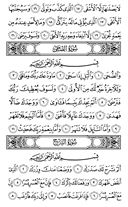 لَا يَصْلَىٰهَآ إِلَّا ٱلْأَشْقَى ١٥ ٱلَّذِى كَذَّبَ وَتَوَلَّىٰ ١٦ وَسَيُجَنَّبُهَا
ٱلْأَتْقَى ١٧ ٱلَّذِى يُؤْتِى مَالَهُۥ يَتَزَكَّىٰ ١٨ وَمَا لِأَحَدٍ عِندَهُۥ
مِن نِّعْمَةٍ تُجْزَىٰٓ ١٩ إِلَّا ٱبْتِغَآءَ وَجْهِ رَبِّهِ ٱلْأَعْلَىٰ ٢٠ وَلَسَوْفَ يَرْضَىٰ ٢١
سُورَةُ الضُّحَىٰ
بِسْمِ ٱللَّهِ ٱلرَّحْمَٰنِ ٱلرَّحِيمِ
وَٱلضُّحَىٰ ١ وَٱلَّيْلِ إِذَا سَجَىٰ ٢ مَا وَدَّعَكَ رَبُّكَ وَمَا قَلَىٰ ٣
وَلَلْءَاخِرَةُ خَيْرٌ لَّكَ مِنَ ٱلْأُولَىٰ ٤ وَلَسَوْفَ يُعْطِيكَ رَبُّكَ
فَتَرْضَىٰٓ ٥ أَلَمْ يَجِدْكَ يَتِيمًا فَـَٔاوَىٰ ٦ وَوَجَدَكَ ضَآلًّا
فَهَدَىٰ ٧ وَوَجَدَكَ عَآئِلًا فَأَغْنَىٰ ٨ فَأَمَّا ٱلْيَتِيمَ فَلَا تَقْهَرْ ٩
وَأَمَّا ٱلسَّآئِلَ فَلَا تَنْهَرْ ١٠ وَأَمَّا بِنِعْمَةِ رَبِّكَ فَحَدِّثْ ١١
سُورَةُ الشَّرْحِ
بِسْمِ ٱللَّهِ ٱلرَّحْمَٰنِ ٱلرَّحِيمِ
أَلَمْ نَشْرَحْ لَكَ صَدْرَكَ ١ وَوَضَعْنَا عَنكَ وِزْرَكَ ٢